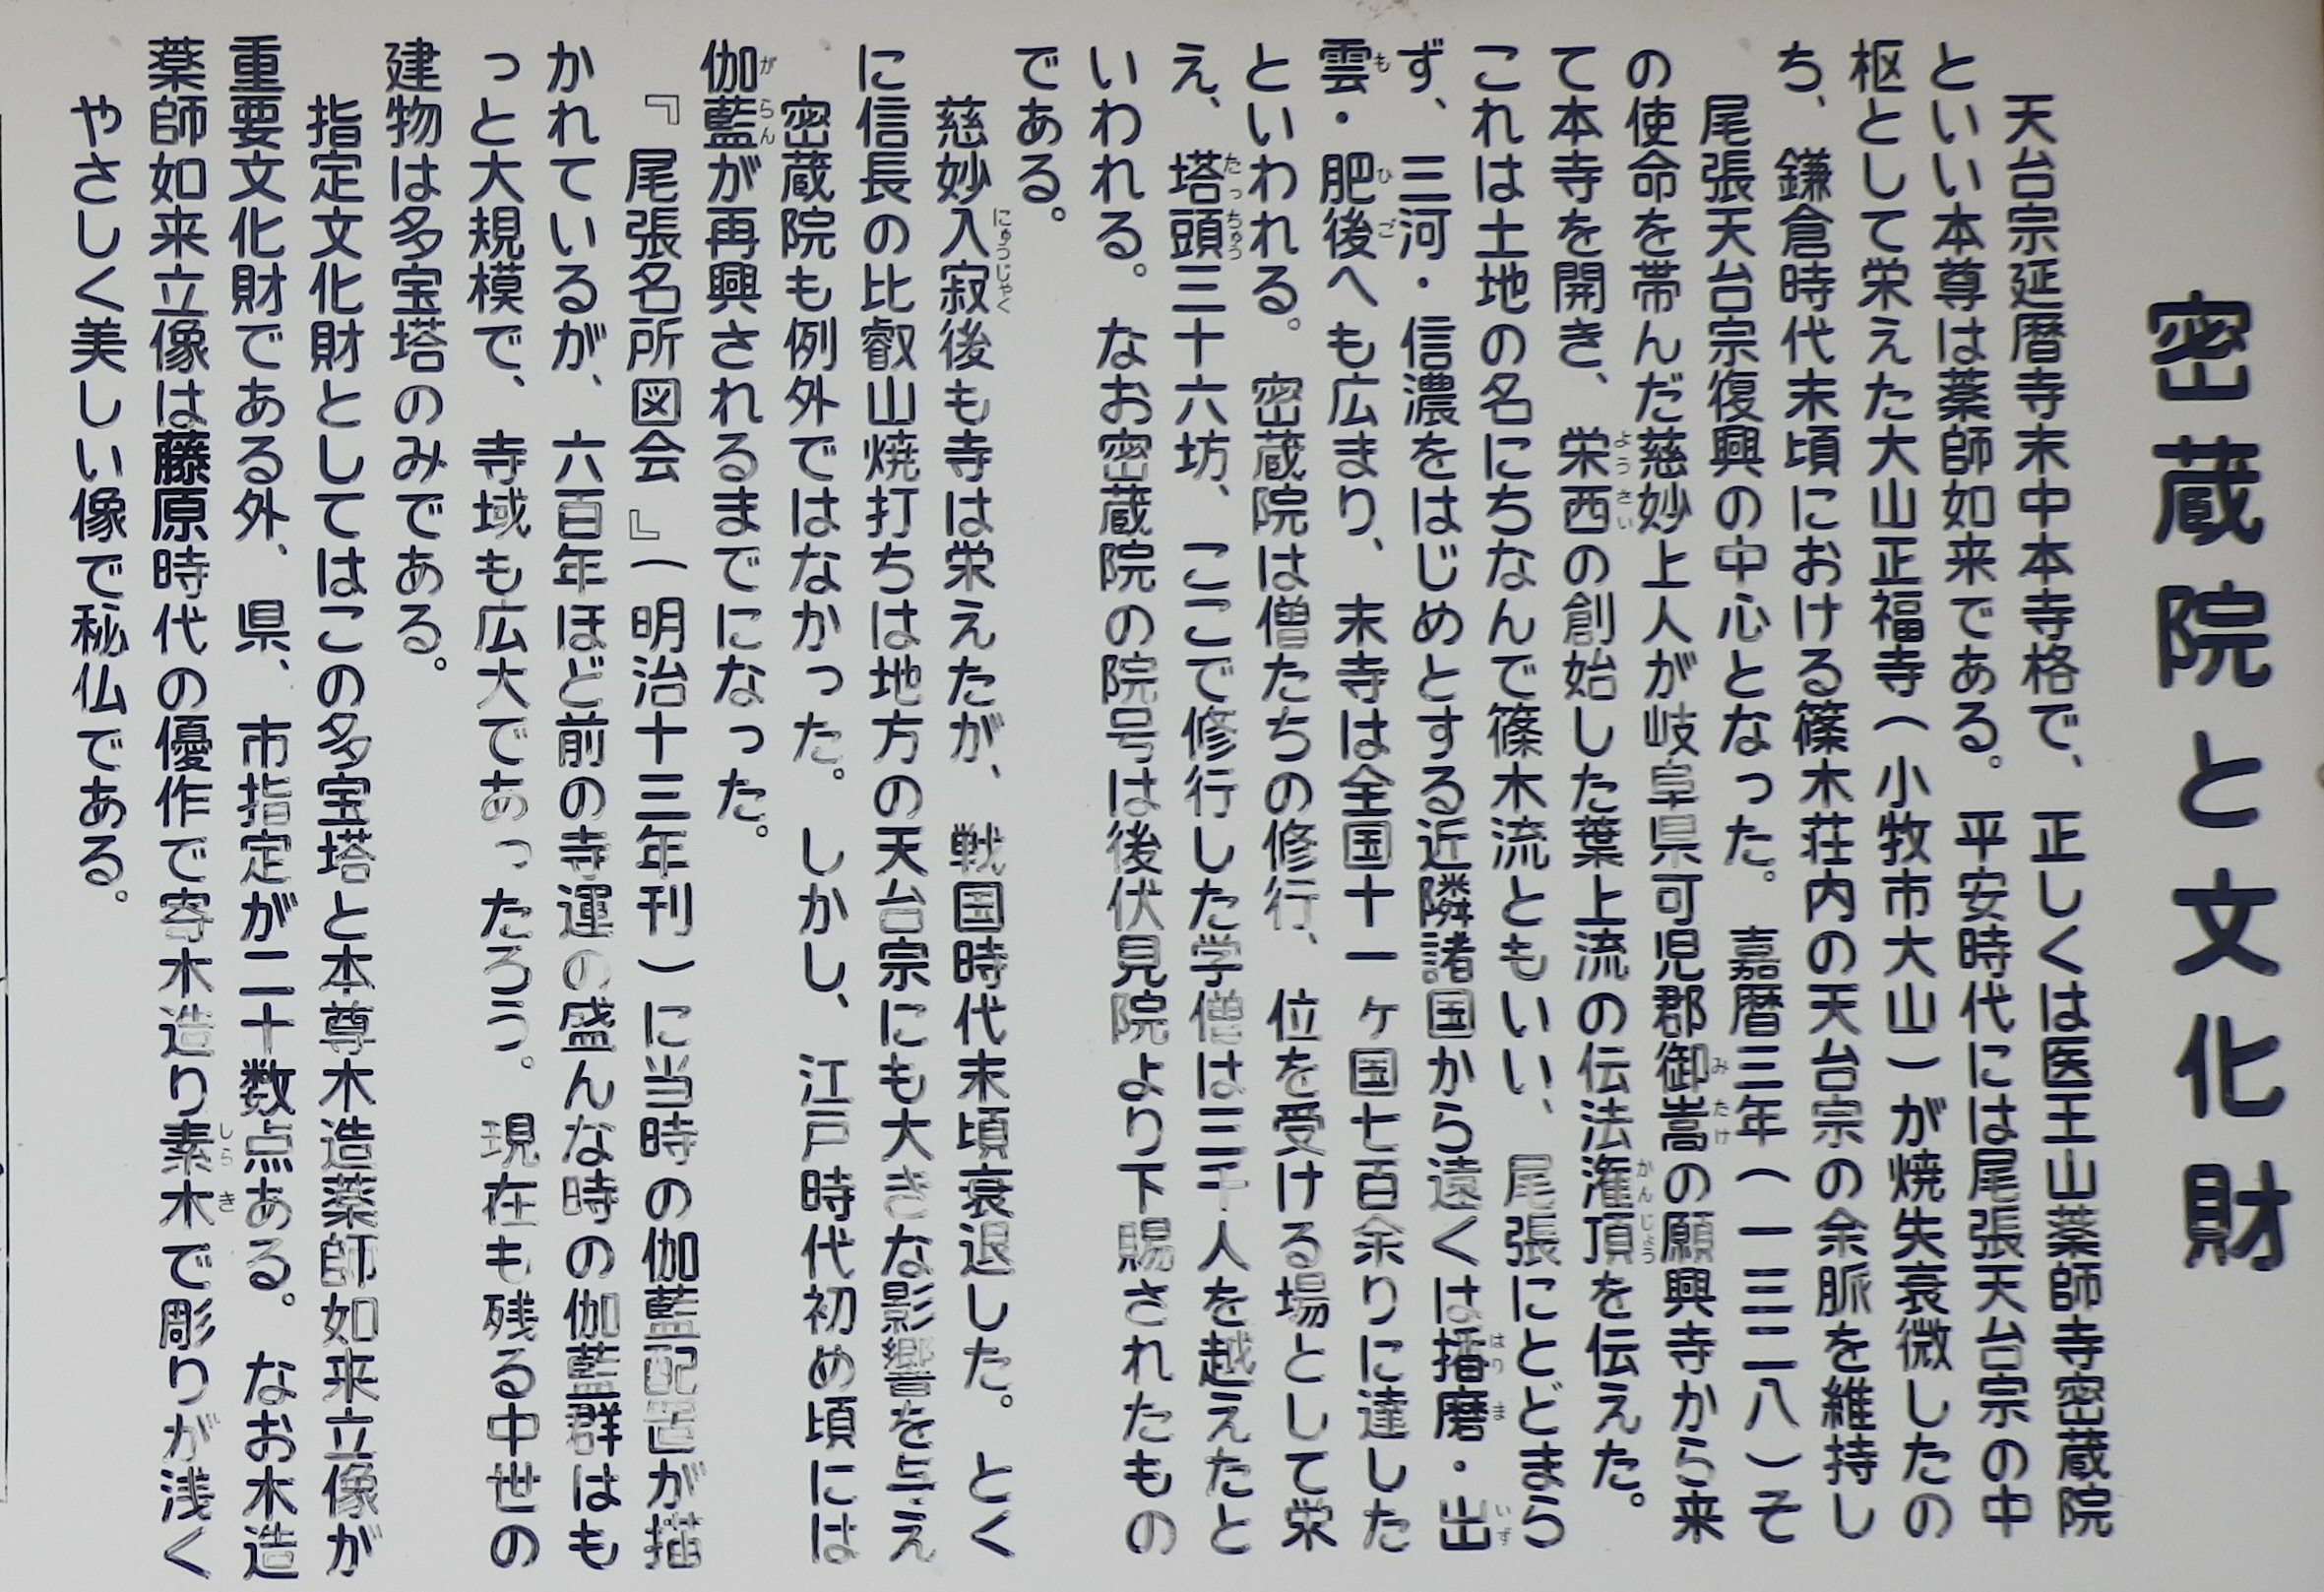 密蔵院と文化財
天台宗延暦寺末中本寺格で、正しくは医王山薬師寺密蔵院
といい本尊は薬師如来である。平安時代には尾張天台宗の中
枢として栄えた大山正福寺(小牧市大山)が焼失衰微したの
ち、鎌倉時代末頃における篠木荘内の天台宗の余脈を維持し
尾張天台宗復興の中心となった。嘉暦三年(一三二八)そ
の使命を帯んだ慈妙上人が岐阜県可児郡御嵩の願興寺から来
て本寺を開き、栄西の創始した葉上流の伝法潅頂を伝えた。
これは土地の名にちなんで篠木流ともいい、尾張にとどまら
ず、三河・信濃をはじめとする近隣諸国から遠くは播磨・出
雲・肥後へも広まり、末寺は全国十一ヶ国七百余りに達した
といわれる。密蔵院は僧たちの修行、位を受ける場として栄
え、塔頭三十六坊、ここで修行した学僧は三千人を越えたと
いわれる。なお密蔵院の院号は後伏見院より下賜されたもの
である。
慈妙入寂後も寺は栄えたが、戦国時代末頃衰退した。とく
に信長の比叡山焼打ちは地方の天台宗にも大きな影響を与え
密蔵院も例外ではなかった。しかし、江戸時代初め頃には
伽藍が再興されるまでになった。
『尾張名所図会』(明治十三年刊)に当時の伽藍配置が描
かれているが、六百年ほど前の寺運の盛んな時の伽藍群はも
っと大規模で、寺域も広大であったろう。現在も残る中世の
建物は多宝塔のみである。
指定文化財としてはこの多宝塔と本尊木造薬師如来立像が
重要文化財である外、県、市指定が二十数点ある。なお木造
薬師如来立像は藤原時代の優作で寄木造り素木で彫りが浅く
やさしく美しい像で秘仏である。